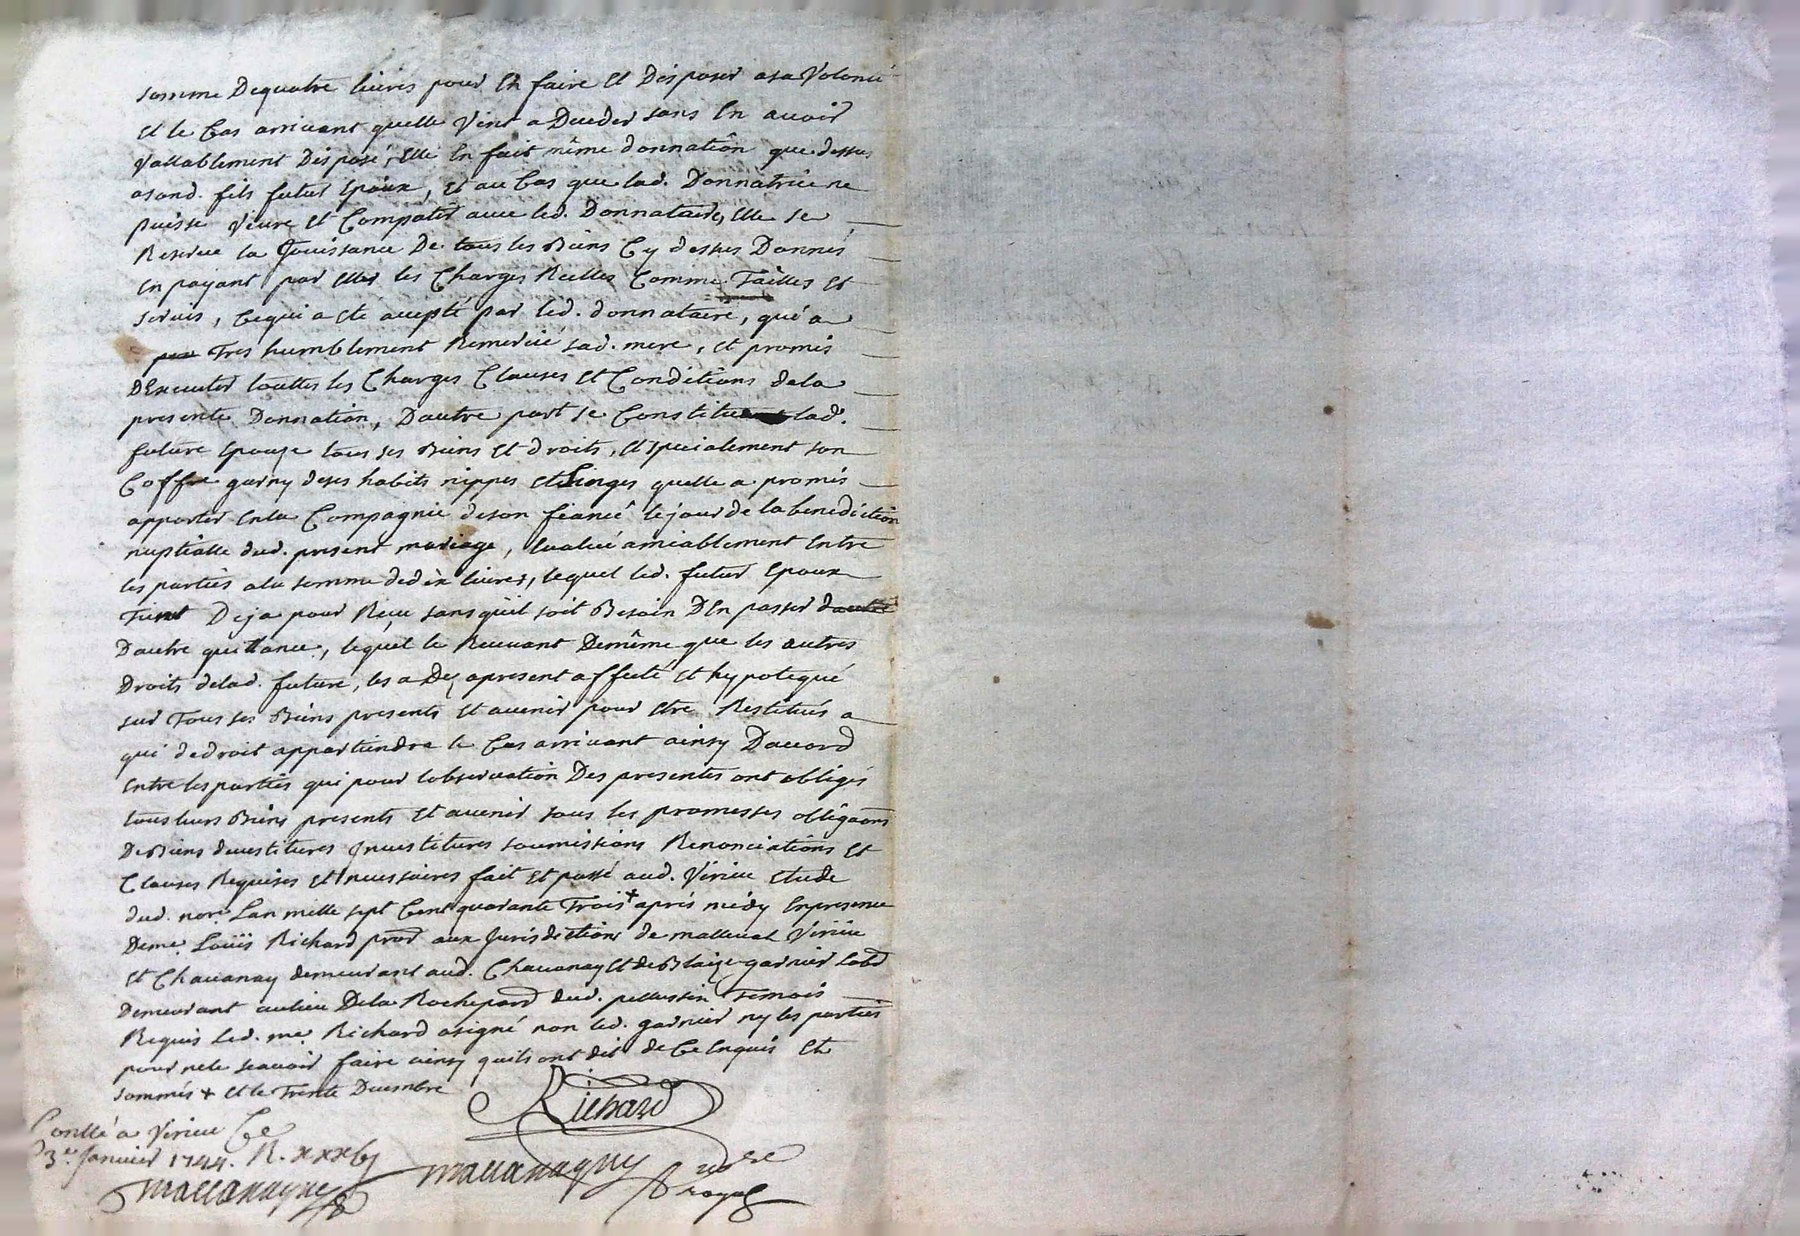 somme Dequatre livres pour En faire Et Disposer asa Volonté
Et le Cas arrivant quelle Vint a Deceder sans En avoir
Vallablement Disposé, Elle En fait même donnation que dessus
asond. fils futur Epoux, Et au Cas que lad. Donnatrice ne
puisse Vivre Et Compatir avec led. Donnataire, Elle se
Reserve la Jouissance De tous les Biens Cy dessus Donnés
En payant par Elle les Charges Reelles Comme Tailles Et
servis, Cequi a eté accepté par led. donnataire, qui a
Tres humblement Remercié sad. mere, Et promis
DExecuter touttes les Charges Clauses Et Conditions dela
presente Donnation, Dautre part se Constitue lad.
future Epouze tous ses Biens Et droits, Et specialement son
Coffre garny deses habits nippes Et Linges quelle a promis
apporter Enla Compagnie deson fiancé le jour de la benediction
nuptialle dud. present mariage, Evalué amiablement Entre
les parties ala somme dedix livres, lequel led. futur Epoux
Tient Deja pour Reçu sans quil soit Besoin DEn passer dautre
Dautre quittance, lequel le Recevant Demême que les autres
Droits delad. future, les a Dez apresent affecté Et hypotequé
sur Tous ses Biens presents Et avenir pour Etre Restitués a
qui dedroit appartiendra le Cas arrivant ainsy Daccord
Entre les parties qui pour lobservation Des presentes ont obligés
tous leurs Biens presents Et avenir sous les promesses obligaons
DeBiens devestitures Investitures soumissions Renonciations Et
Clauses Requises Et necessaires fait Et passé aud. Virieu Etude
dud. nore Lan mille sept Cent quarante Trois + aprés midy Enpresence
Deme. Loüis Richard procr aux Jurisdictions de malleval Virieu
Et Chavanay demeurant aud. Chavanay Et deBlaize garnier Labr
Demeurant aulieu Dela Rochepard dud. pellussin Temoins
Requis led. me. Richard asigné non led. garnier ny les parties
pour nele scavoir faire ainsy quils ont dit de Ce Enquis Et
sommés + Et le Trente Decembre
Richard
Conllé a Virieu Ce
3e. Janvier 1744. R. xxxvj